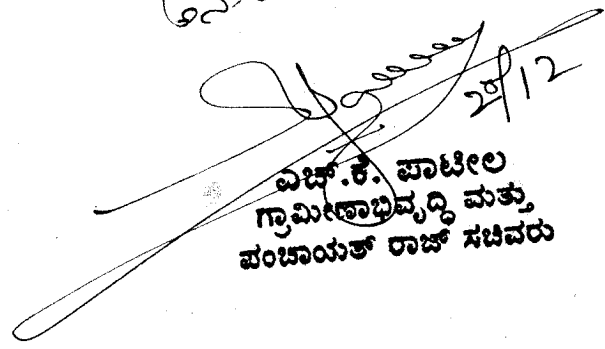 20/12
ಎಚ್.ಕೆ. ಪಾಟೀಲ
ಗ್ರಾಮೀಣಾಭಿವೃದ್ಧಿ ಮತ್ತು
ಪಂಚಾಯತ್ ರಾಜ್ ಸಚಿವರು